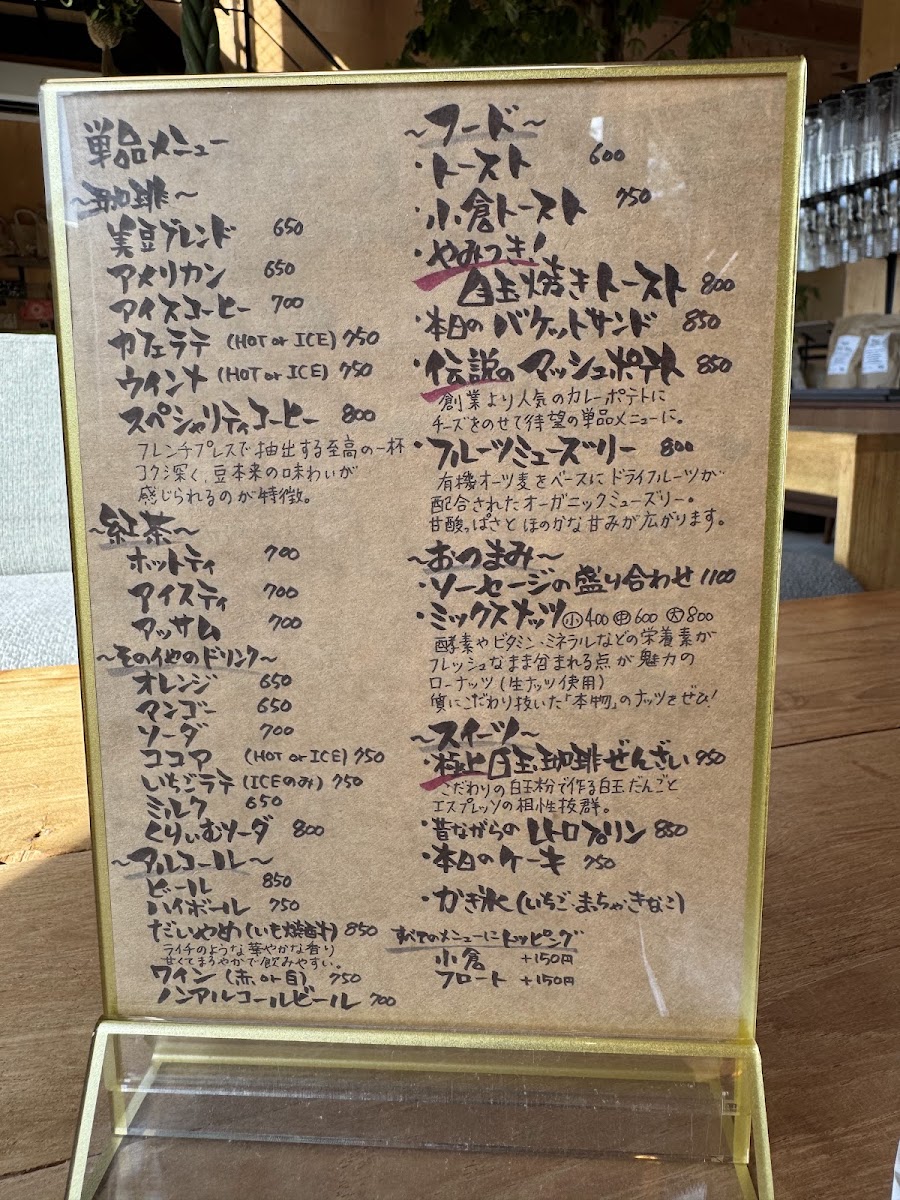 単品メニュー
~珈琲~
美豆ブレンド 650
アメリカン 650
アイスコーヒー 700
カフェラテ (HOT or ICE) 750
ウインナ (HOT or ICE) 750
スペシャリティコーヒー 800
フレンチプレスで抽出する至高の一杯
コク深く、豆本来の味わいが
感じられるのが特徴。
~紅茶~
ホットティ 700
アイスティ 700
アッサム 700
~その他のドリンク~
オレンジ 650
マンゴー 650
ソーダ 700
ココア (HOT or ICE) 750
いちごラテ (ICEのみ) 750
ミルク 650
くりぃむソーダ 800
~アルコール~
ビール 850
ハイボール 750
だいやめ (いも焼酎) 850
ライチのような華やかな香り
甘くてまろやかで飲みやすい。
ワイン (赤 or 白) 750
ノンアルコールビール 700
~フード~
・トースト 600
・小倉トースト 750
・やみつき!
目玉焼きトースト 800
・本日のバケットサンド 850
・伝説のマッシュポテト 850
創業より人気のカレーポテトに
チーズをのせて待望の単品メニューに。
・フルーツミューズリー 800
有機オーツ麦をベースにドライフルーツが
配合されたオーガニックミューズリー。
甘酸っぱさとほのかな甘みが広がります。
~おつまみ~
・ソーセージの盛り合わせ 1100
・ミックスナッツ ㊦小 400 ㊥ 600 ㊤大 800
酵素やビタミン・ミネラルなどの栄養素が
フレッシュなまま含まれる点が魅力の
ローナッツ (生ナッツ使用)
質にこだわり抜いた「本物」のナッツをぜひ!
~スイーツ~
・極上白玉珈琲ぜんざい 950
こだわりの白玉粉で作る白玉だんごと
エスプレッソの相性抜群。
・昔ながらのレトロプリン 850
・本日のケーキ 750
・かき氷 (いちご・まっちゃ・きなこ)
すべてのメニューにトッピング
小倉 +150円
フロート +150円